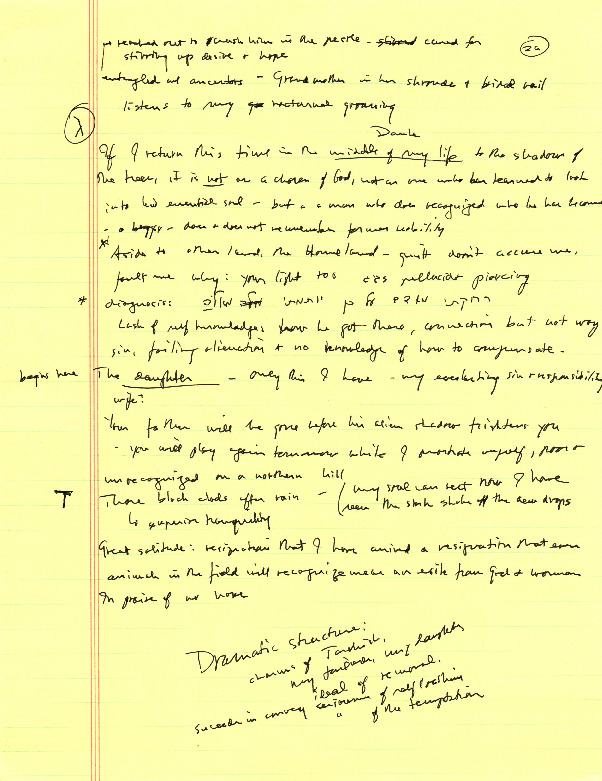 reached out to him in the people - cared for
2a
stirring up desire + hope
entangled w/ ancestors - Grandmother in her shrouds + bridal veil
listens to my nocturnal groaning
λ
Dante
If I return this time in the middle of my life to the shadow of
the trees, it is not as a chosen of God, not as one who has learned to look
into his essential soul - but as a man who does recognize who he has become
- a beggar - does + does not remember former nobility
* Aside to other land, the Homeland - guilt don't accuse me,
fault me why: your light too pellucid piercing
* diagnosis:
Lack of self knowledge, how he got there, connection but not way
sin, failing alienation + no knowledge of how to compensate.
begins here The daughter - only this I have - my everlasting sin + responsibility
wife:
Your father will be gone before his alien shadow frightens you
- you will play again tomorrow while I prostrate myself, poor +
unrecognized on a northern hill
T Those black clods after rain - (my soul can rest now I have
seen the stalk shake off the dew drops
superior tranquility
Great solitude: resignation that I have arrived a resignation that even
animals in the field will recognize me as an exile from God + woman
In praise of
Dramatic structure:
charms of
my fantasies, my daughter
of removal.
succeeds in convey seriousness of self loathing
" of the temptation